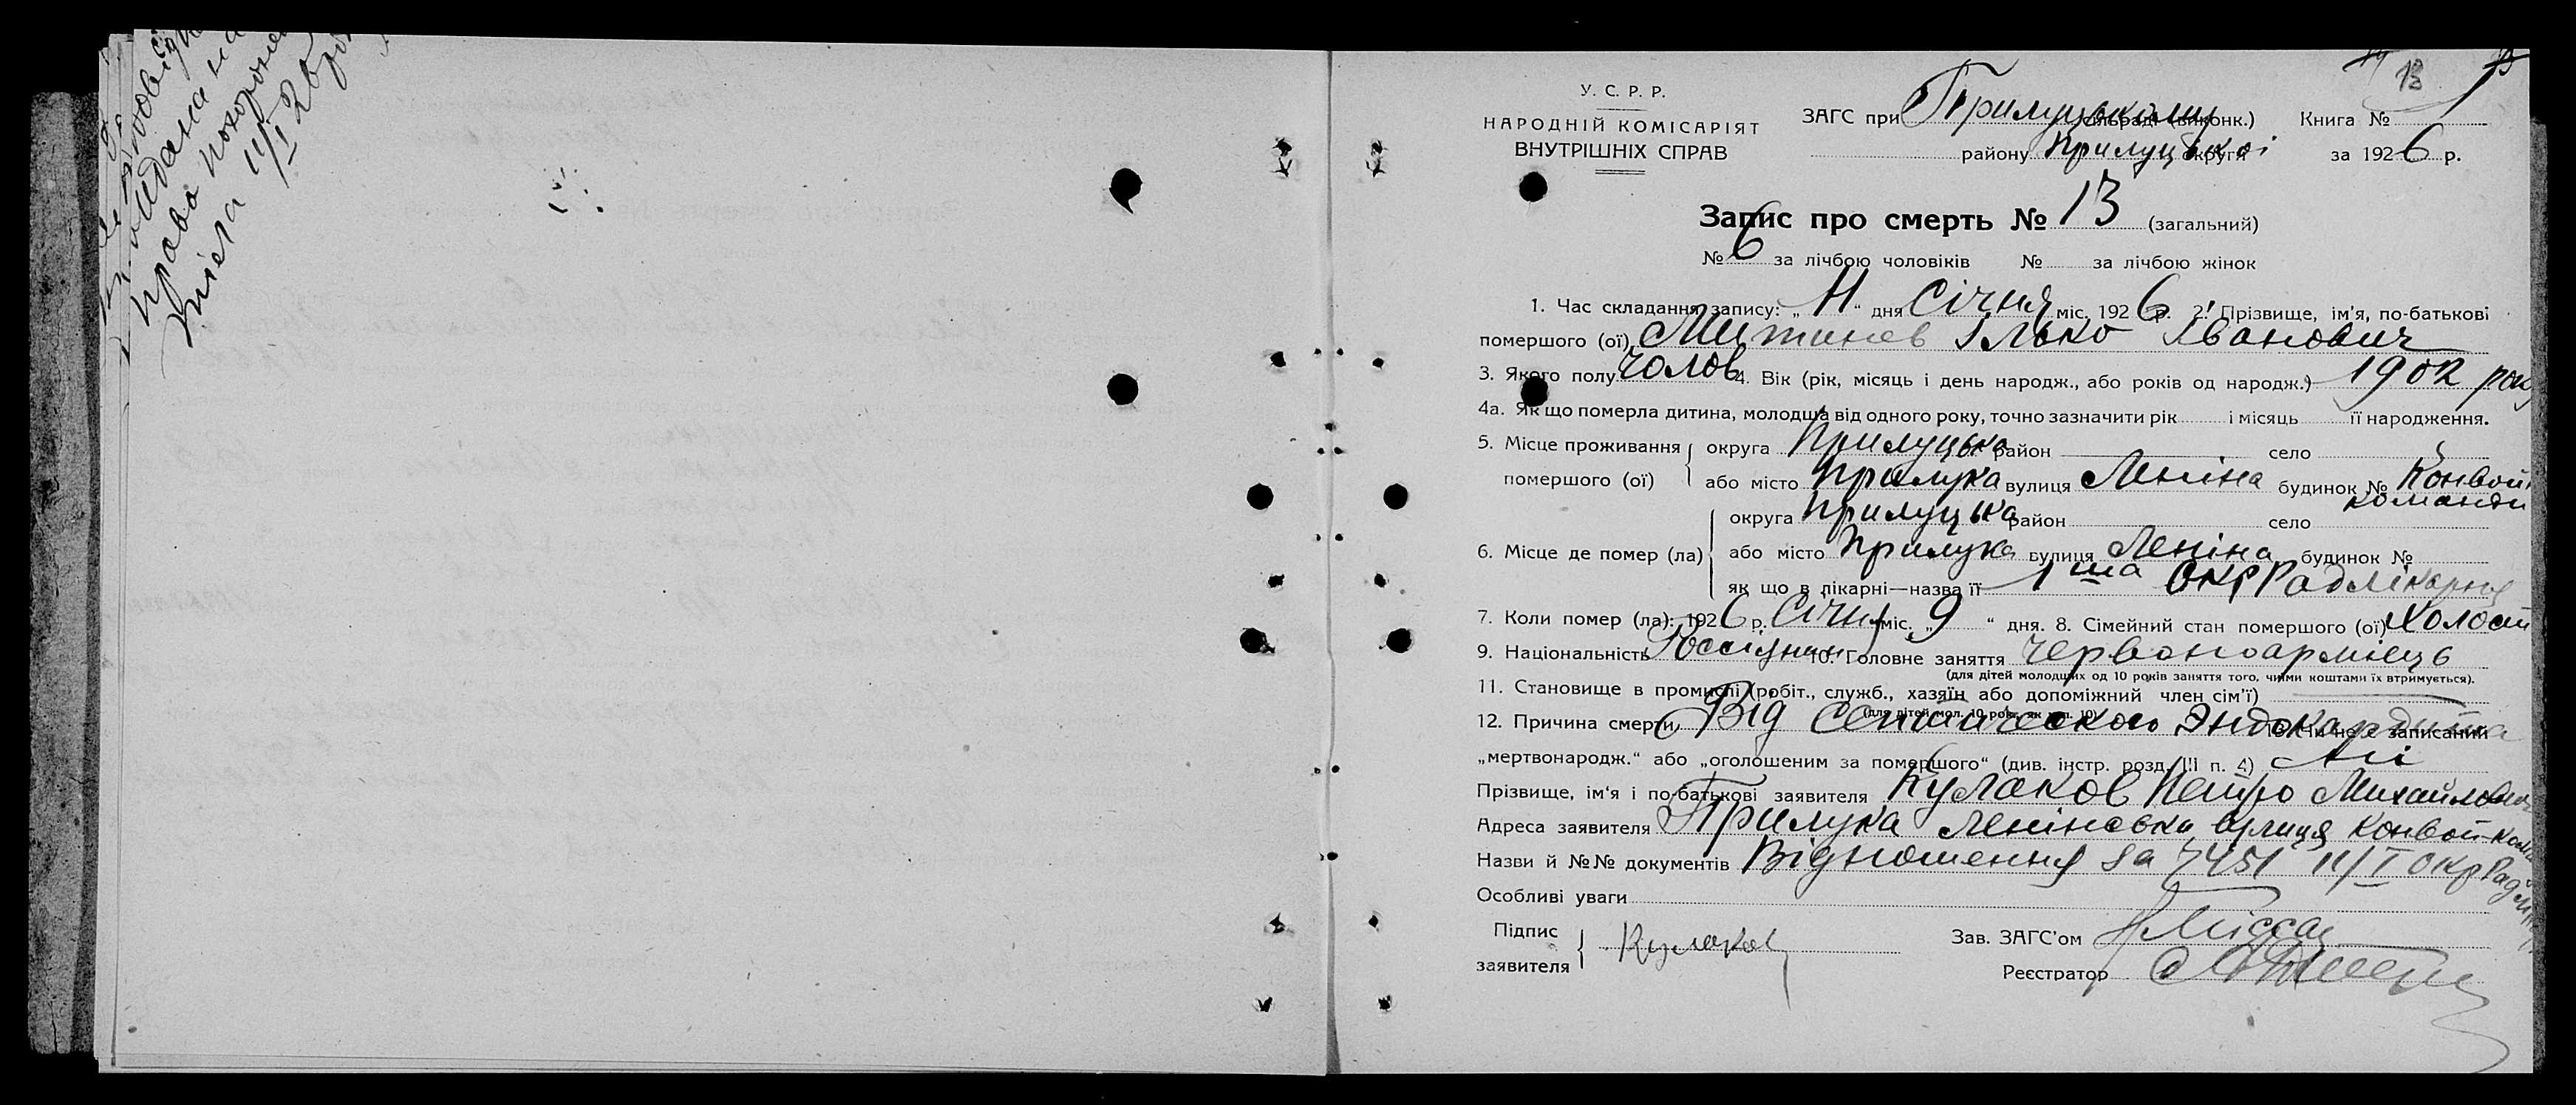 видана на
право похорон
тіла 11/I 26 р
13
У. С. Р. Р.
НАРОДНІЙ КОМІСАРІЯТ
ВНУТРІШНІХ СПРАВ
ЗАГС при Прилуцькому сільраді (виконк.) Книга № 1
району Прилуцькоі округи за 1926 р.
Запис про смерть № 13 (загальний)
№ 6 за лічбою чоловіків № за лічбою жінок
1. Час складання запису: „11“ дня Січня міс. 1926 р. 2. Прізвище, ім'я, по-батькові
помершого (ої) Ілько Іванович
3. Якого полу Чолов 4. Вік (рік, місяць і день народж., або років од народж.) 1902 року
4а. Як що померла дитина, молодша від одного року, точно зазначити рік і місяць її народження.
5. Місце проживання помершого (ої) округа Прилуцька район село
або місто Прилука вулиця Леніна будинок № Конвой команди
6. Місце де помер (ла) округа Прилуцька район село
або місто Прилука вулиця Леніна будинок №
як що в лікарні—назва її 1ша ОкрРадлікарня
7. Коли помер (ла): 1926 р. Січня міс. „9“ дня. 8. Сімейний стан помершого (ої) Холост
9. Національність 10. Головне заняття Червоноармієць
(для дітей молодших од 10 років заняття того, чиїми коштами їх втримується).
11. Становище в промислі (робіт., служб., хазяїн або допоміжний член сім'ї)
(для дітей мол. 10 років, як у п. 10)
12. Причина смерти Від септического Эндокардита 13. Чи не є записаний
„мертвонародж.“ або „оголошеним за помершого“ (див. інстр. розд. III п. 4) Ні
Прізвище, ім'я і по-батькові заявителя Кулаков Петро Михайлович
Адреса заявителя Прилука Ленінська вулиця Конвой-кома
Назви й №№ документів Відношення за 7451 11/I ОкрРадлік
Особливі уваги
Підпис заявителя Кулаков Зав. ЗАГС'ом
Реєстратор